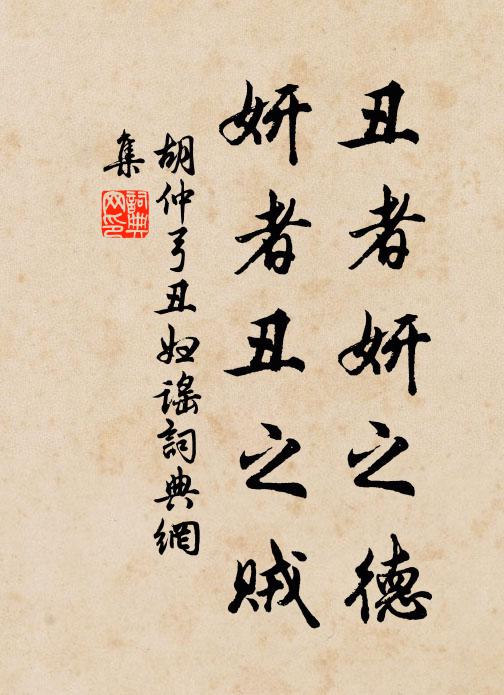 丑者妍之德
妍者丑之贼
胡仲弓丑妇谣詞典網
集
詞典
网印